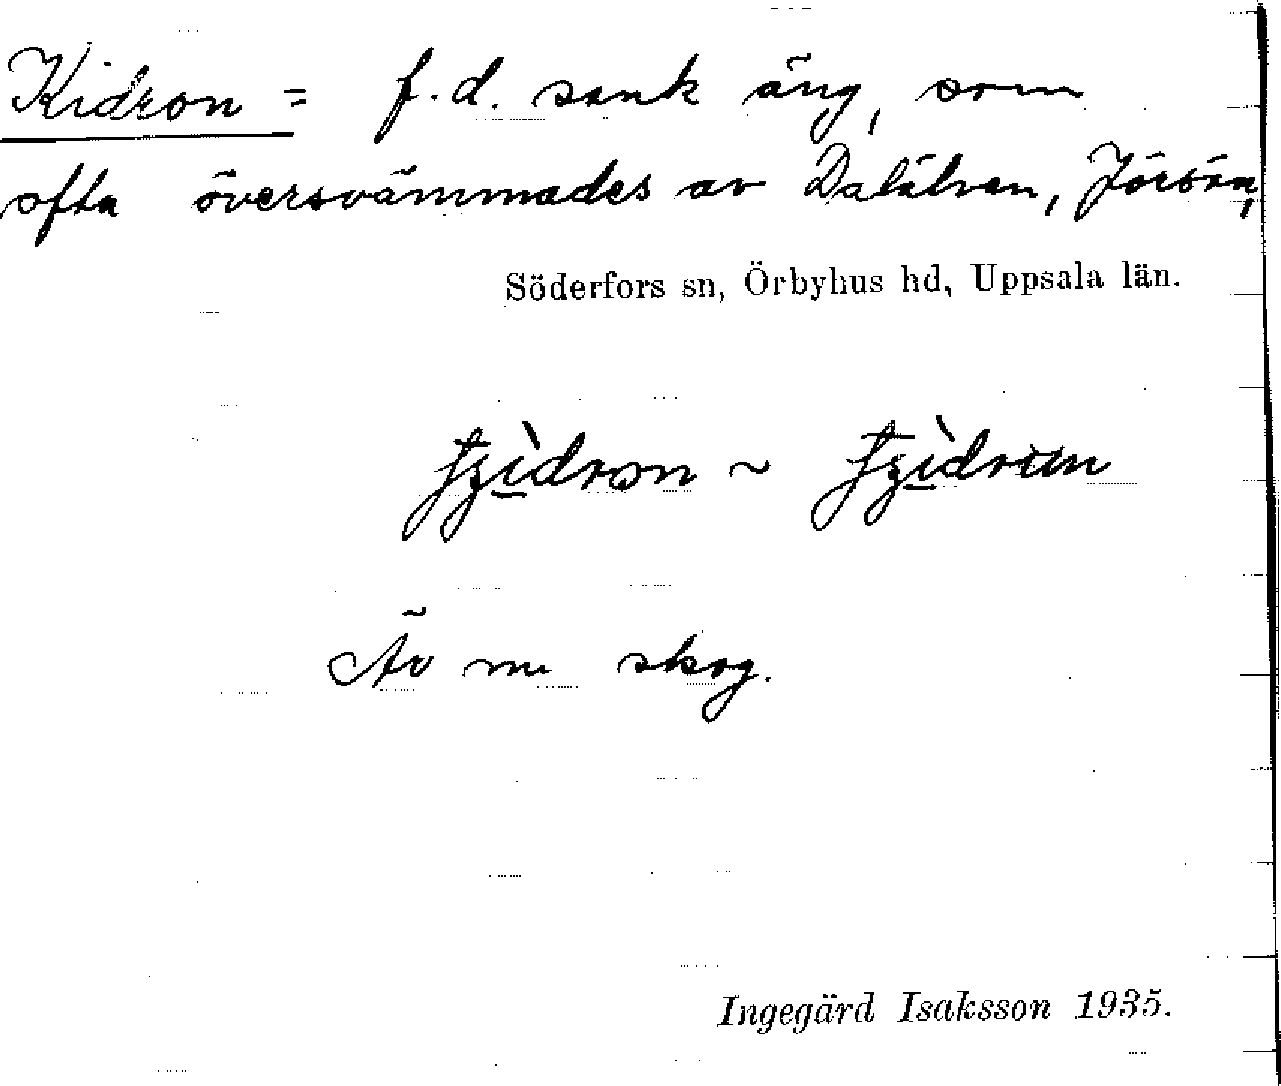 Kidron = f.d. sank äng, som
ofta översvämmades av Dalälven, Jörsön,
Söderfors sn, Örbyhus hd, Uppsala län.
Är nu skog.
Ingegärd Isaksson 1935.